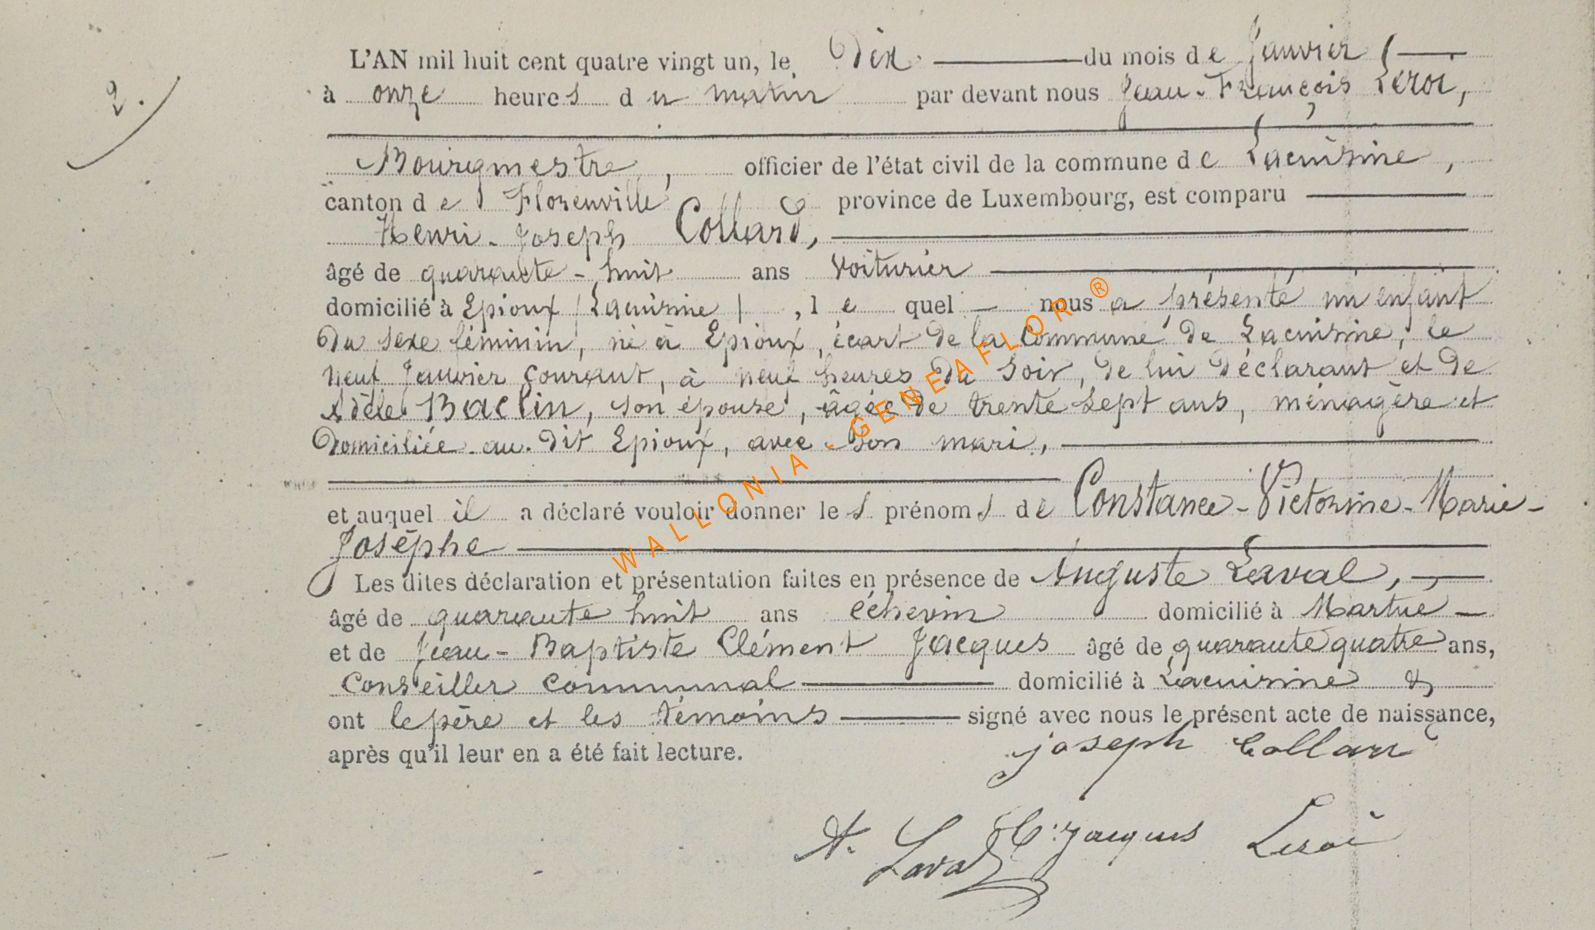 2.
L'AN mil huit cent quatre vingt un, le Dix du mois de Janvier
à onze heures du matin par devant nous Jean-François Leroi,
Bourgmestre, officier de l'état civil de la commune de Lacuisine,
canton de Florenville province de Luxembourg, est comparu
Henri-Joseph Collard,
âgé de quarante-huit ans voiturier
domicilié à Epioux (Lacuisine), le quel nous a présenté un enfant
du sexe féminin, né à Epioux, écart de la Commune de Lacuisine, le
neuf Janvier courant, à neuf heures du soir, de lui déclarant et de
Adèle Baclin, son épouse, âgée de trente sept ans, ménagère et
domiciliée au dit Epioux, avec son mari,
et auquel il a déclaré vouloir donner les prénoms de Constance-Victorine-Marie-
Josèphe
Les dites déclaration et présentation faites en présence de Auguste Laval,
âgé de quarante huit ans échevin domicilié à Martué
et de Jean-Baptiste Clément Jacques âgé de quarante quatre ans,
Conseiller communal domicilié à Lacuisine &
ont le père et les témoins signé avec nous le présent acte de naissance,
après qu'il leur en a été fait lecture.
joseph Collard
A. Laval C. Jacques Leroi
WALLONIA - GENEAFLOR ®